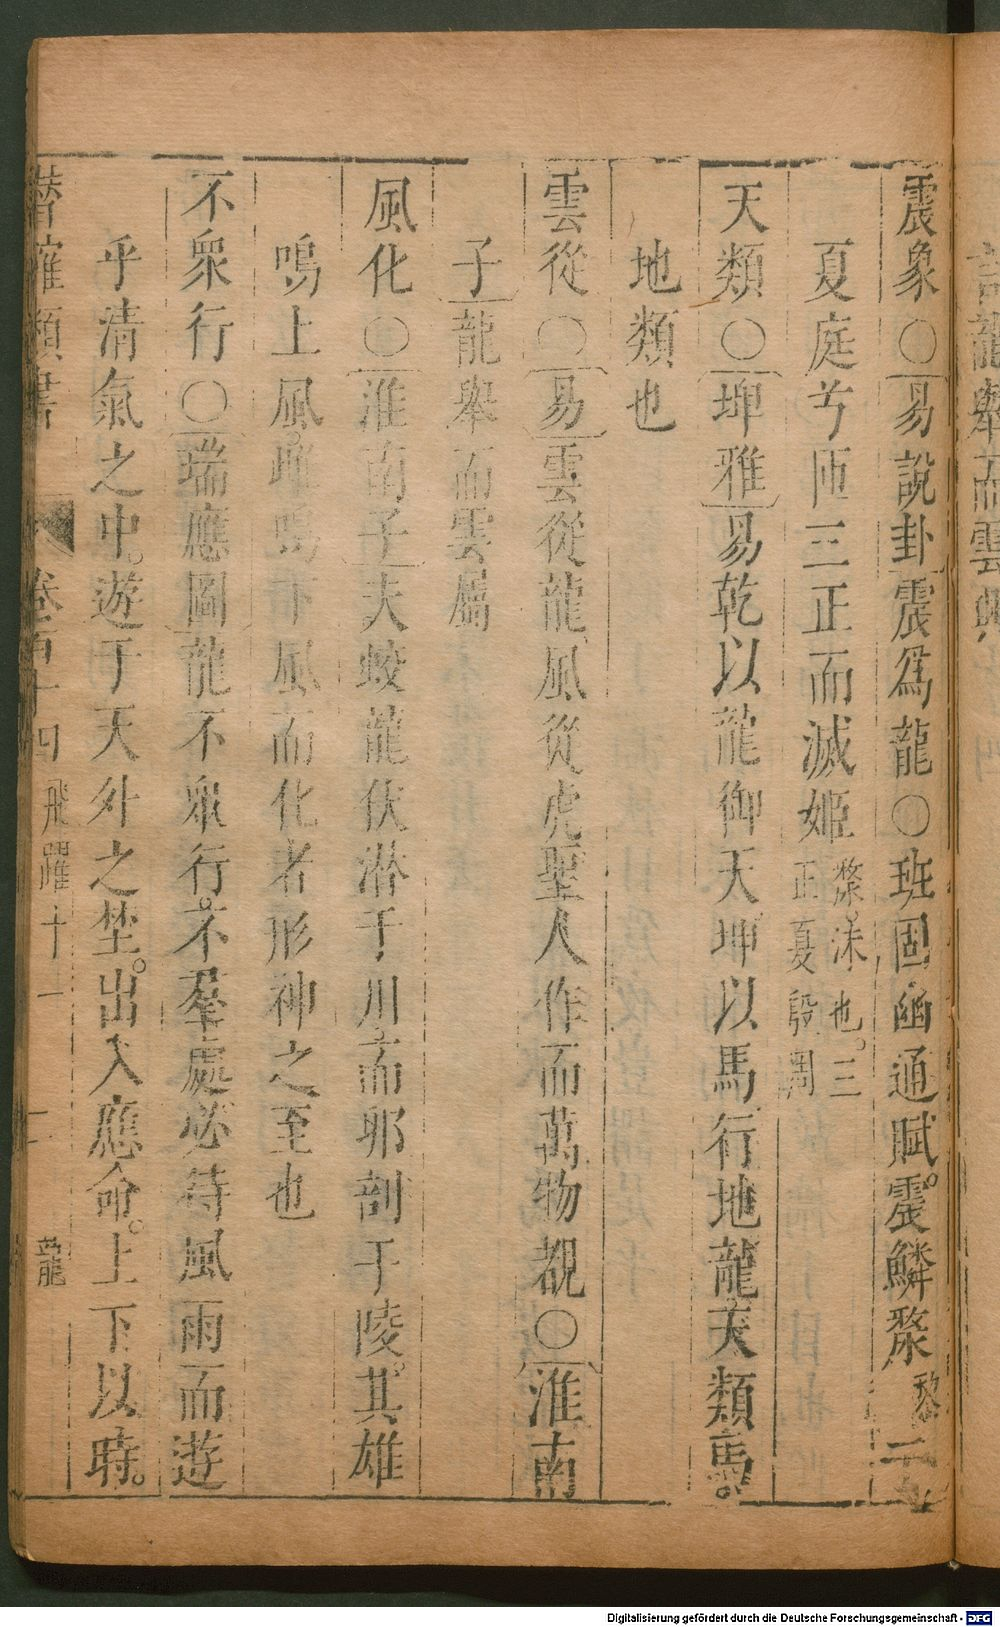 震象○易說卦震爲龍○班固幽通賦。震鱗漦黎于
夏庭兮匝三正而滅姬漦。沫也。三正夏殷周
天類○埤雅易乾以龍御天。坤以馬行地龍天類馬。
地類也
雲從○易雲從龍風從虎聖人作而萬物覩○淮南
子龍舉而雲屬
風化○淮南子夫蛟龍伏潜于川。而卵剖于陵。其雄
鳴上風。雌鳴下風而化者形神之至也
不衆行○瑞應圖龍不衆行。不羣處必待風雨而遊
乎淸氣之中。遊于天外之埜。出入應命。上下以時。
潛確類書 卷百十四 飛躍十一 二 龍
龍舉而雲興
Digitalisierung gefördert durch die Deutsche Forschungsgemeinschaft - DFG